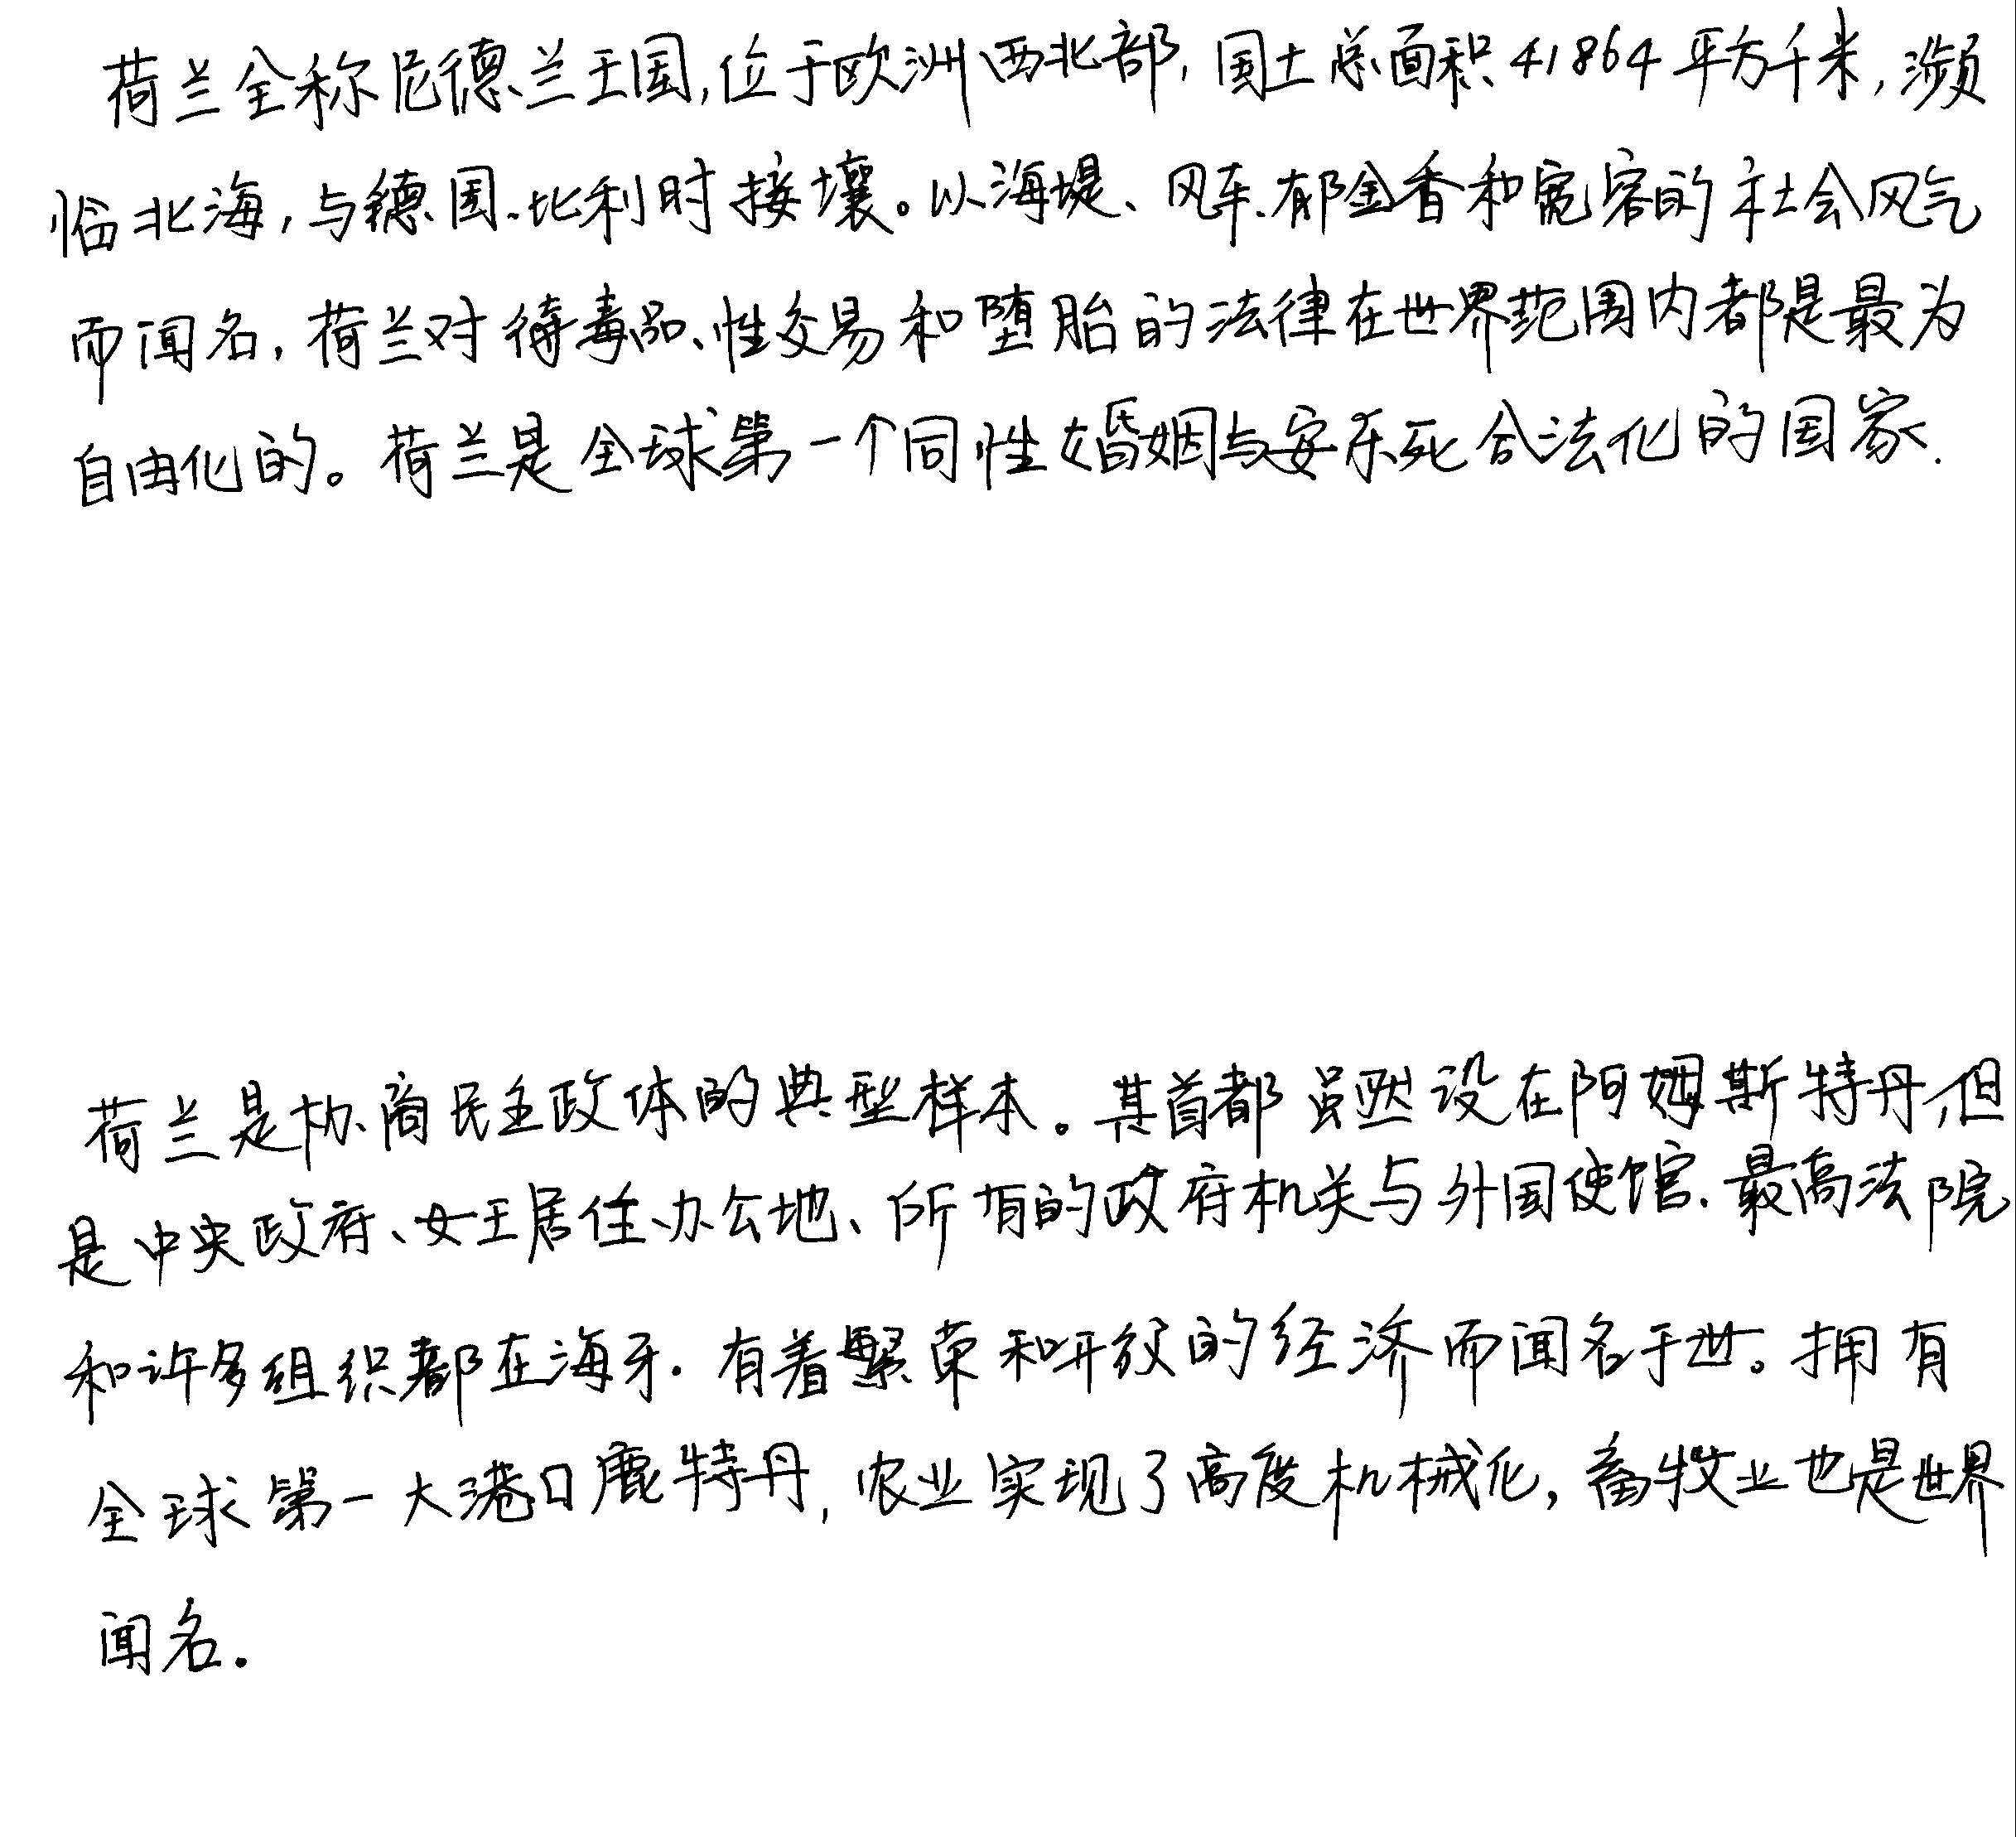 荷兰全称尼德兰王国,位于欧洲西北部,国土总面积41864平方千米,濒
临北海,与德国、比利时接壤。以海堤、风车、郁金香和宽容的社会风气
而闻名,荷兰对待毒品、性交易和堕胎的法律在世界范围内都是最为
自由化的。荷兰是全球第一个同性婚姻与安乐死合法化的国家.
荷兰是协商民主政体的典型样本。其首都虽然设在阿姆斯特丹,但
是中央政府、女王居住办公地、所有的政府机关与外国使馆.最高法院
和许多组织都在海牙.有着繁荣和开放的经济而闻名于世。拥有
全球第一大港口鹿特丹,农业实现了高度机械化,畜牧业也是世界
闻名.